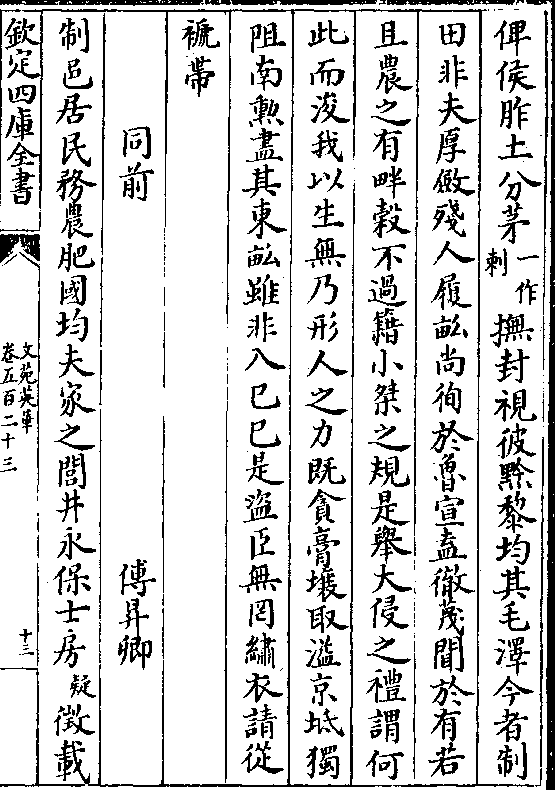 俾侯胙土分茅一作刺撫封視彼黔黎均其毛澤今者制
田非夫厚斂殘人履畝尚徇於魯宣盍徹蔑聞於有若
且農之有畔穀不過籍小桀之規是舉大侵之禮謂何
此而浚我以生無乃形人之力既貪膏壤取溢京坻獨
阻南勲盡其東畝雖非入已已是盜臣無罔繡衣請從
褫帶
同前 傅昇卿
制邑居民務農肥國均夫家之閭井永保士房疑徵載
欽定四庫全書
文苑英華
卷五百二十三
十三